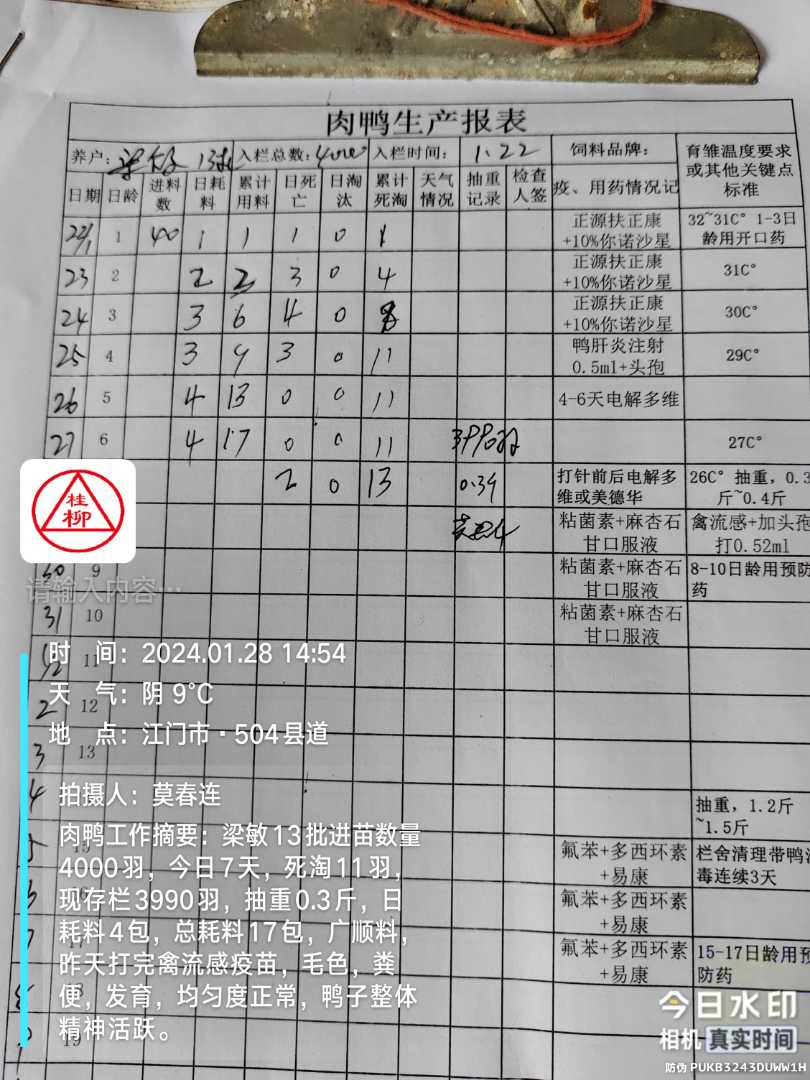 肉鸭生产报表
养户: 梁敏 13批 入栏总数: 4000 入栏时间: 1.22 饲料品牌: 育雏温度要求或其他关键点标准
日期 日龄 进料数 日耗料 累计用料 日死亡 日淘汰 累计死淘 天气情况 抽重记录 检查人签 疫、用药情况记
22/1 1 40 1 1 1 0 1 正源扶正康+10%你诺沙星 32~31C° 1-3日龄用开口药
23 2 2 2 3 0 4 正源扶正康+10%你诺沙星 31C°
24 3 3 6 4 0 8 正源扶正康+10%你诺沙星 30C°
25 4 3 9 3 0 11 鸭肝炎注射0.5ml+头孢 29C°
26 5 4 13 0 0 11 4-6天电解多维
27 6 4 17 0 0 11 3990羽 27C°
2 0 13 0.39 打针前后电解多维或美德华 26C° 抽重，0.3斤~0.4斤
粘菌素+麻杏石甘口服液 禽流感+加头孢打0.52ml
桂柳
30 9 粘菌素+麻杏石甘口服液 8-10日龄用预防药
请输入内容…
31 10 粘菌素+麻杏石甘口服液
11
2 12
3 13
4 抽重，1.2斤~1.5斤
5 氟苯+多西环素+易康 栏舍清理带鸭消毒连续3天
氟苯+多西环素+易康
7 氟苯+多西环素+易康 15-17日龄用预防药
19
时 间: 2024.01.28 14:54
天 气: 阴 9℃
地 点: 江门市·504县道
拍摄人: 莫春连
肉鸭工作摘要: 梁敏13批进苗数量
4000羽，今日7天，死淘11羽，
现存栏3990羽，抽重0.3斤，日
耗料4包，总耗料17包，广顺料，
昨天打完禽流感疫苗，毛色，粪
便，发育，均匀度正常，鸭子整体
精神活跃。
今日水印
相机 真实时间
防伪 PUKB3243DUWW1H